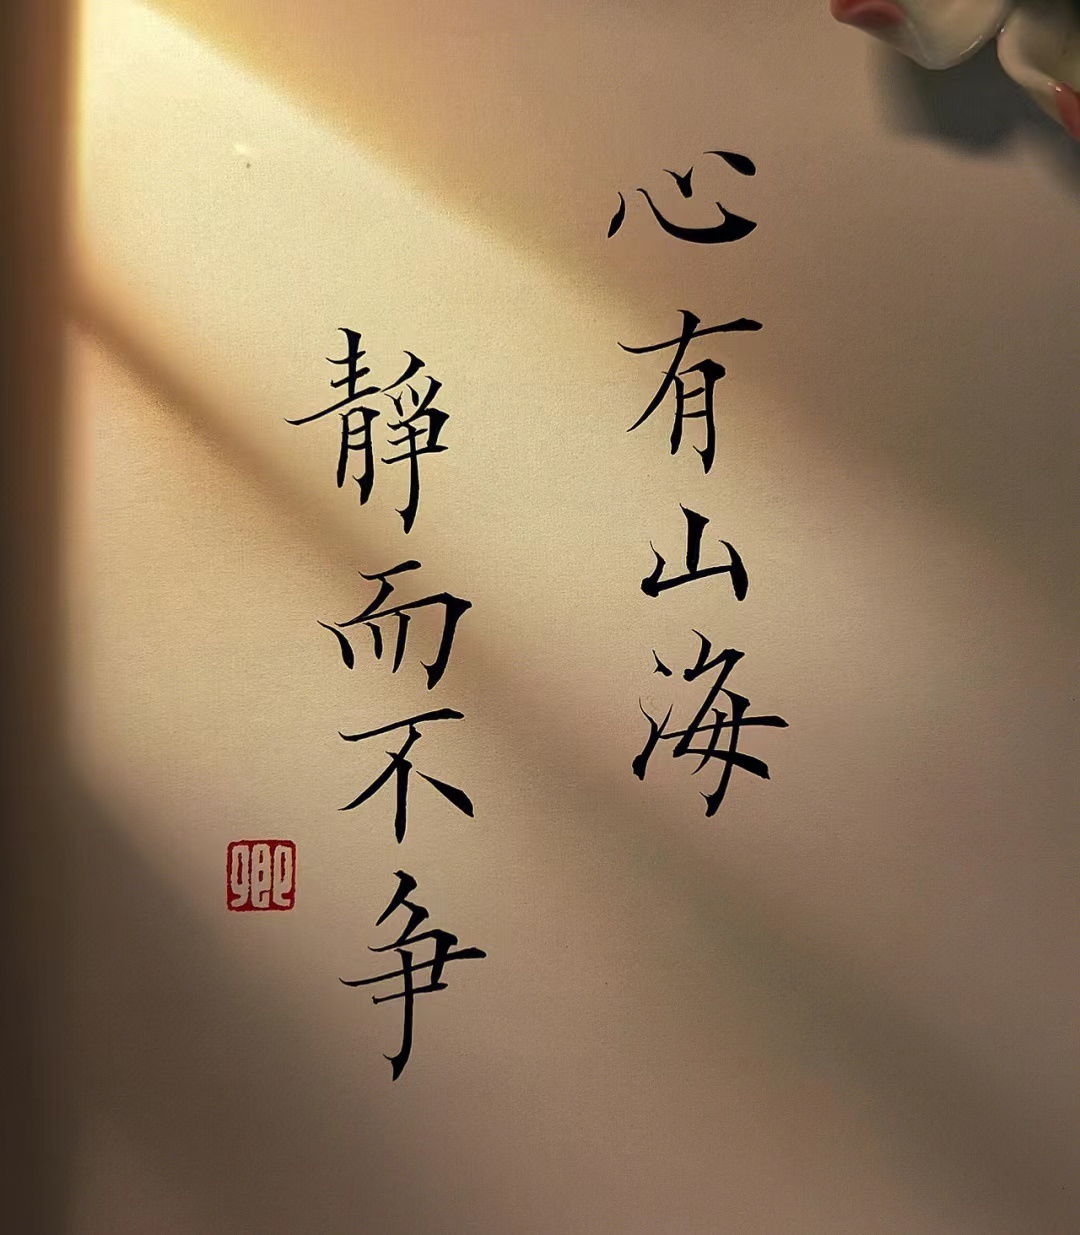 心有山海
靜而不争